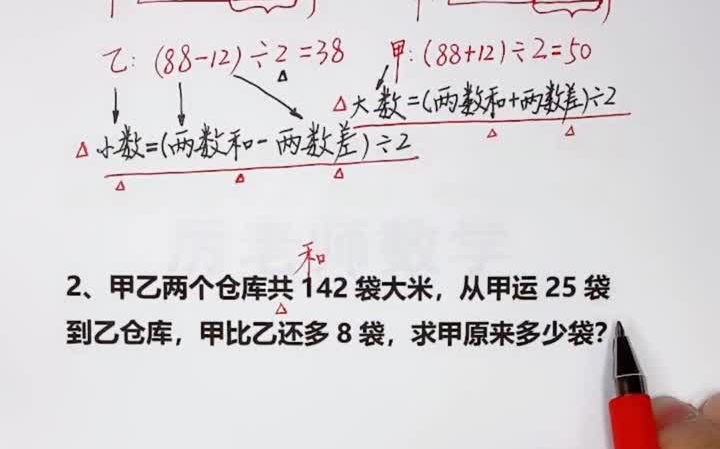 乙:(88-12)÷2=38 甲:(88+12)÷2=50
大数=(两数和+两数差)÷2
小数=(两数和-两数差)÷2
厉老师数学
和
2、甲乙两个仓库共 142 袋大米，从甲运 25 袋
到乙仓库，甲比乙还多 8 袋，求甲原来多少袋?